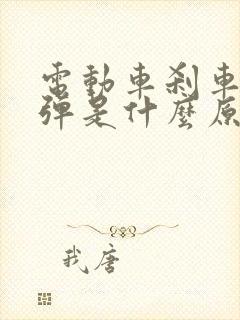 電動車剎車
彈是什麼原
我唐